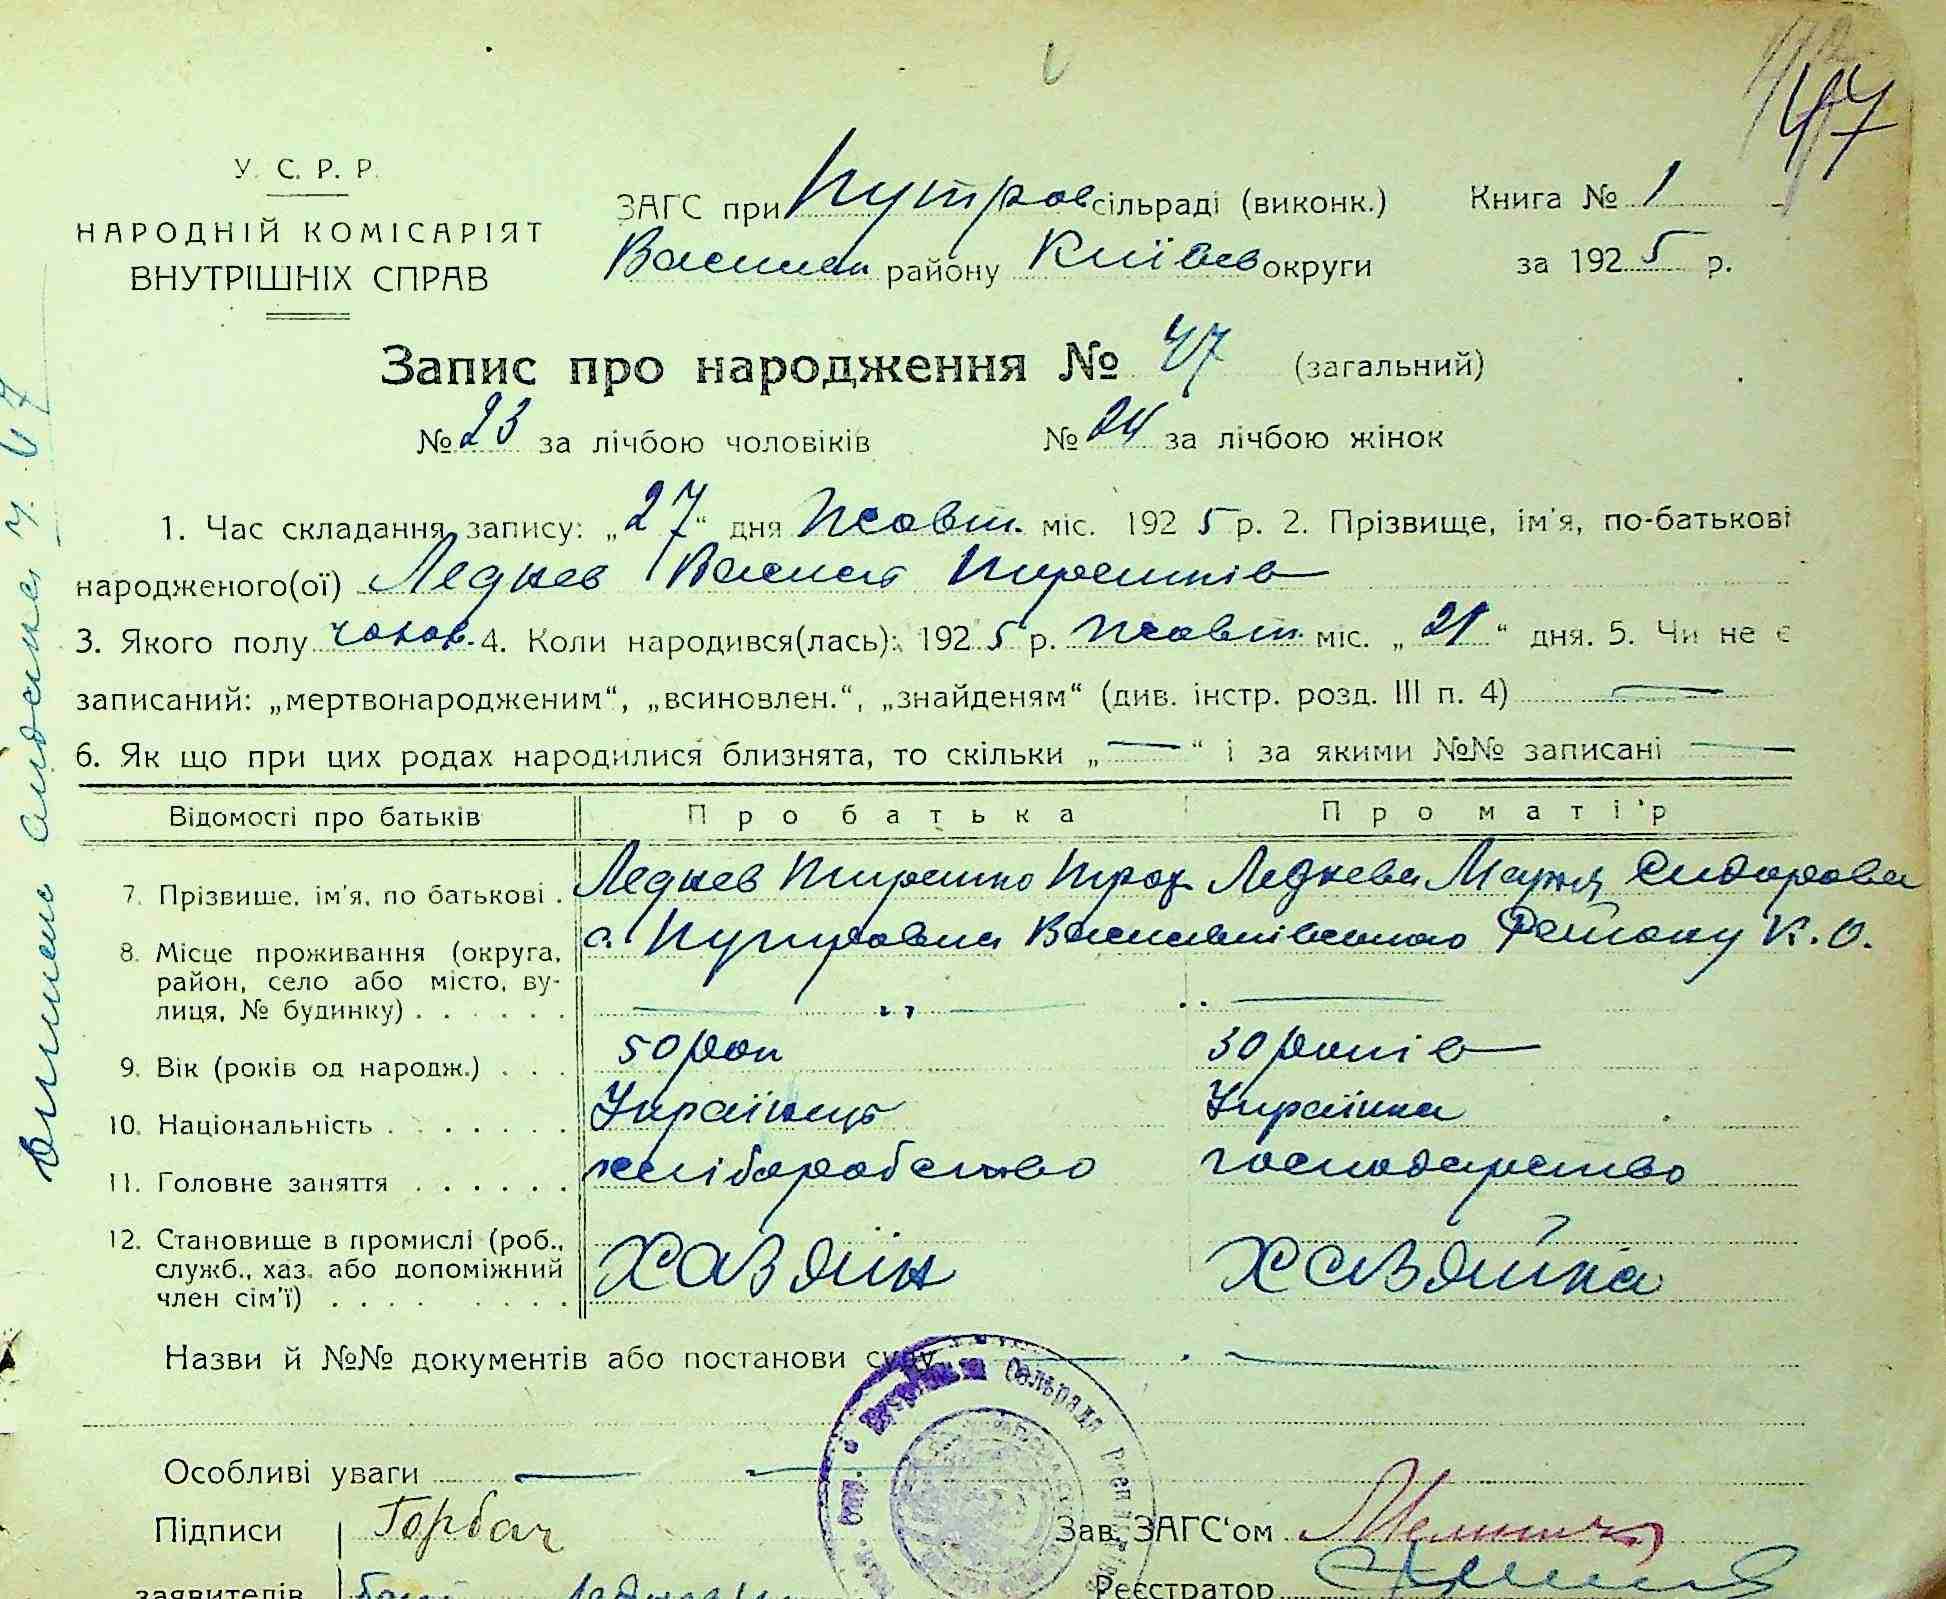 47
У. С. Р. Р.
НАРОДНІЙ КОМІСАРІЯТ
ВНУТРІШНІХ СПРАВ
ЗАГС при Путров сільраді (виконк.) Книга № 1
Васильк району Київсв округи за 1925 р.
Запис про народження № 47 (загальний)
№ 23 за лічбою чоловіків № 24 за лічбою жінок
1. Час складання запису: „27“ дня Жовт. міс. 1925 р. 2. Прізвище, ім'я, по-батькові
народженого(ої) Леднев
3. Якого полу чолов. 4. Коли народився(лась): 1925 р. Жовт. міс. „21“ дня. 5. Чи не є
записаний: „мертвонародженим“, „всиновлен.“, „знайденям“ (див. інстр. розд. III п. 4) —
6. Як що при цих родах народилися близнята, то скільки „—“ і за якими №№ записані —
Відомості про батьків Про батька Про маті'р
7. Прізвище, ім'я, по батькові . Леднев Леднева Марія Сидорова
8. Місце проживання (округа, район, село або місто, вулиця, № будинку) . . . . . . с. Путровка Васильківського Району К.О.
9. Вік (років од народж.) . . . 50 рок 30 років
10. Національність . . . . . . . Українець Українка
11. Головне заняття . . . . . . хліборобство господарство
12. Становище в промислі (роб., служб., хаз. або допоміжний член сім'ї) . . . . . . . . ХАЗЯIН ХАЗЯЙКА
Назви й №№ документів або постанови суду —
Особливі уваги —
Підписи Горбач Зав. ЗАГС'ом
заявителів Реєстратор